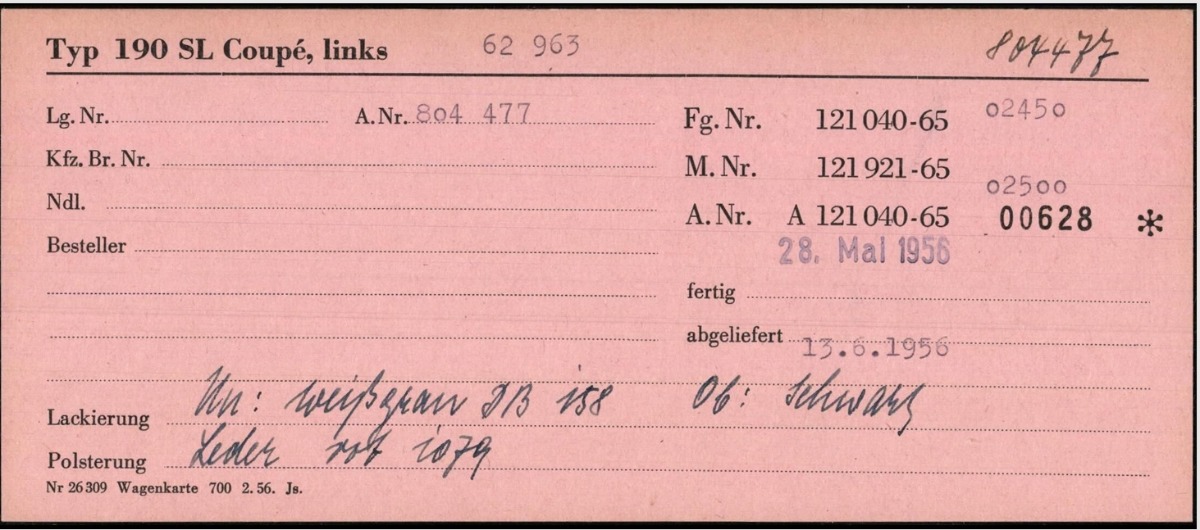 Typ 190 SL Coupé, links 62 963 804477
Lg. Nr. A. Nr. 804 477 Fg. Nr. 121 040-65 02450
Kfz. Br. Nr. M. Nr. 121 921-65 02500
Ndl. A. Nr. A 121 040-65 00628 *
Besteller 28. Mai 1956
fertig
abgeliefert 13.6.1956
Lackierung Un: weißgrau DB 158 Ob: schwarz
Polsterung Leder rot 1079
Nr 26309 Wagenkarte 700 2.56. Js.